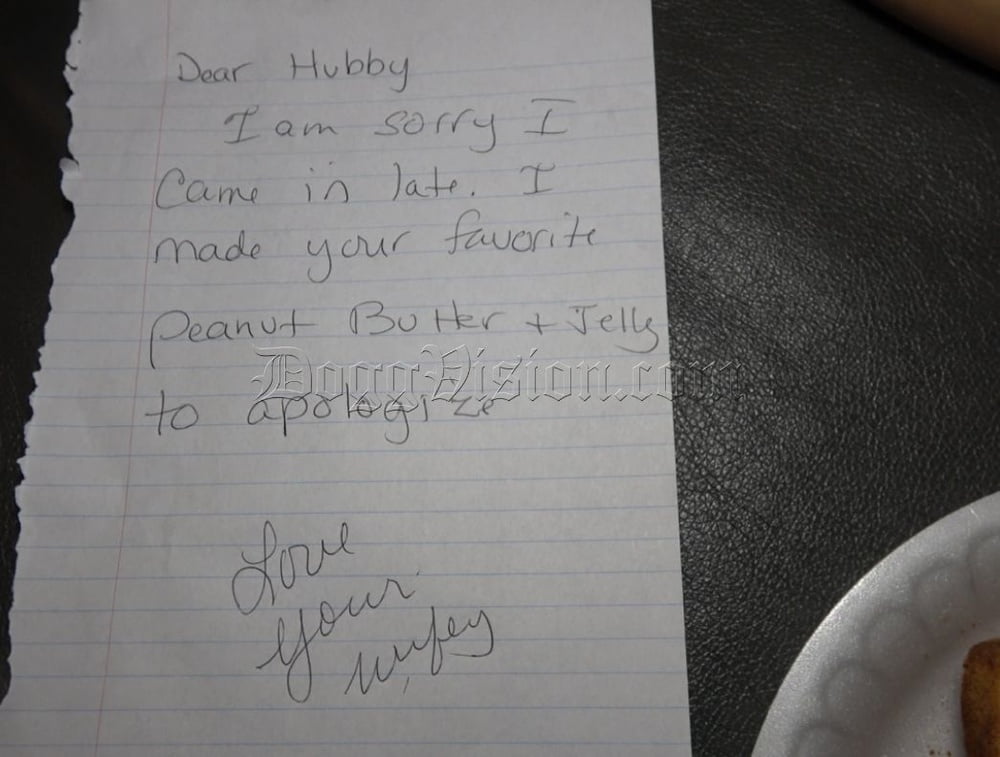 Dear Hubby
I am sorry I
Came in late. I
made your favorite
Peanut Butter + Jelly
DoggVision.com
to apologize
Love
your
wifey